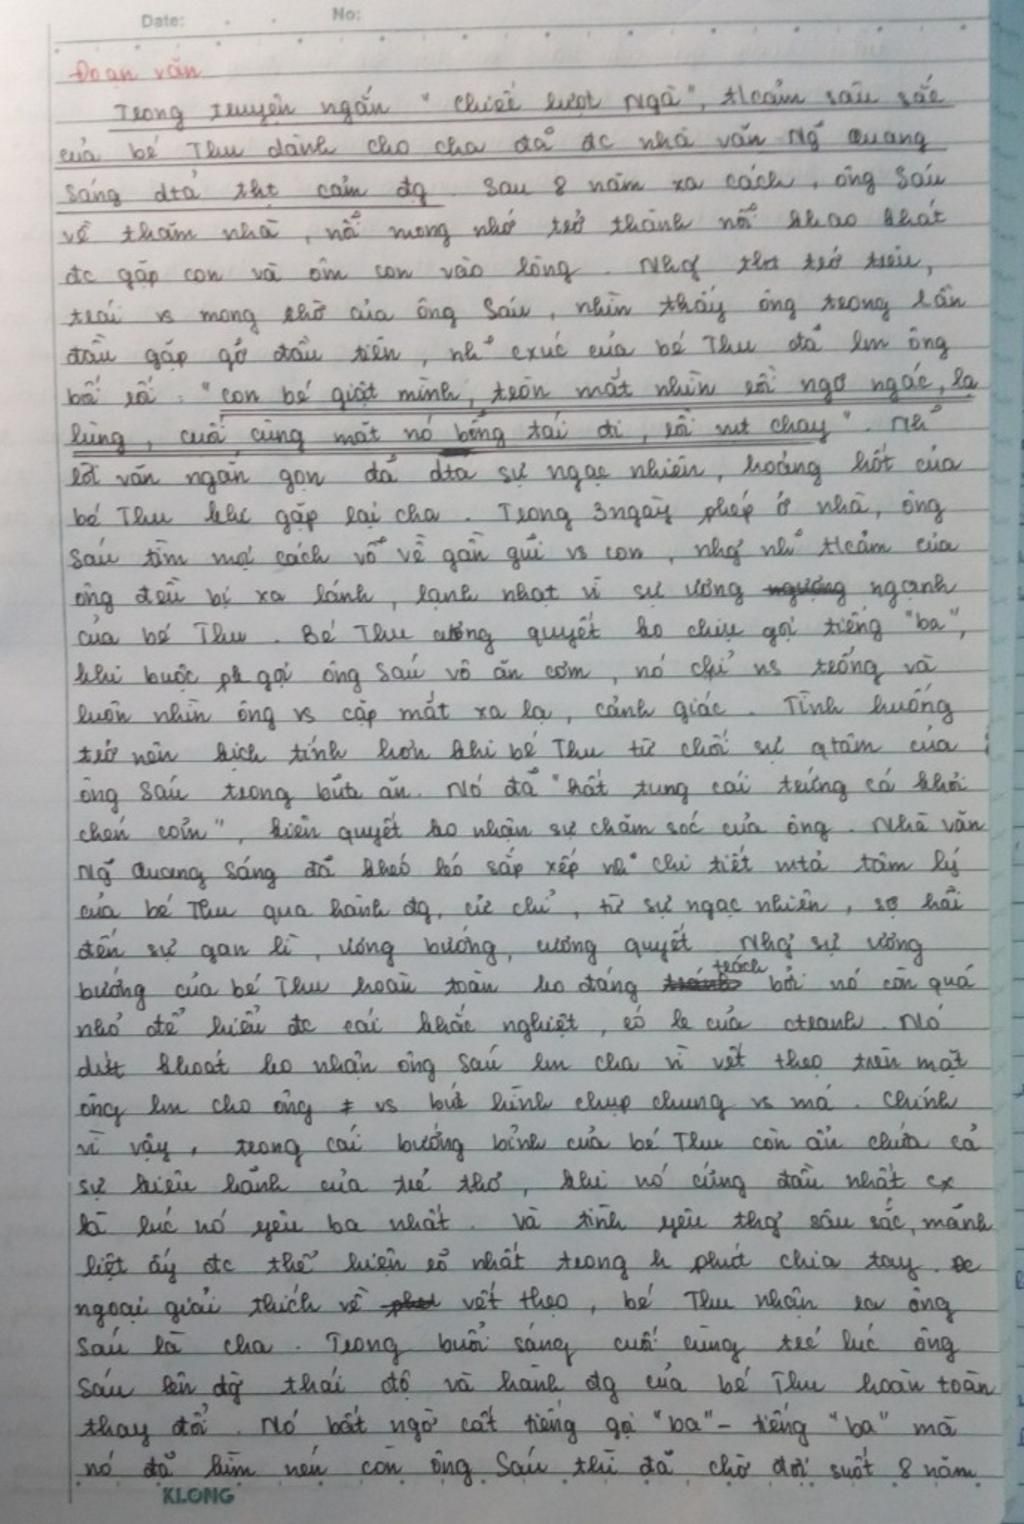 Date: No:
Đoạn văn
Trong truyện ngắn "chiếc lượt Ngà", t/cảm sâu sắc
của bé Thu dành cho cha đã đc nhà văn Ng~ Quang
Sáng dtả thật cảm đg. Sau 8 năm xa cách, ông Sáu
về thăm nhà, nỗi mong nhớ trở thành nỗi khao khát
đc gặp con và ôm con vào lòng. Nhg trớ trêu,
trái vs mong chờ của ông Sáu, nhìn thấy ông trong lần
đầu gặp gỡ đầu tiên, nh~ cxúc của bé Thu đã lm ông
bối rối: "con bé giật mình, tròn mắt nhìn rồi ngơ ngác, lạ
lùng, cuối cùng mặt nó bỗng tái đi, rồi vụt chạy". Nh~
lời văn ngắn gọn đã dtả sự ngạc nhiên, hoảng hốt của
bé Thu khi gặp lại cha. Trong 3ngày phép ở nhà, ông
Sáu tìm mọi cách vỗ về gần gũi vs con, nhg nh~ t/cảm của
ông đều bị xa lánh, lạnh nhạt vì sự ương ngạnh
của bé Thu. Bé Thu cương quyết ko chịu gọi tiếng "ba",
khi buộc ph gọi ông Sáu vô ăn cơm, nó chỉ ns trống và
luôn nhìn ông vs cặp mắt xa lạ, cảnh giác. Tình huống
trở nên kịch tính hơn khi bé Thu từ chối sự qtâm của
ông Sáu trong bữa ăn. Nó đã "hất tung cái trứng cá khỏi
chén cơm", kiên quyết ko nhận sự chăm sóc của ông. Nhà văn
Ng~ Quang Sáng đã khéo léo sắp xếp nh~ chi tiết mtả tâm lý
của bé Thu qua hành đg, cử chỉ, từ sự ngạc nhiên, sợ hãi
đến sự gan lì, ương bướng, cương quyết. Nhg sự ương
bướng của bé Thu hoàn toàn ko đáng trách bởi nó còn quá
nhỏ để hiểu đc cái khắc nghiệt, éo le của ctranh. Nó
dứt khoát ko nhận ông Sáu lm cha vì vết thẹo trên mặt
ông lm cho ông ≠ vs bức hình chụp chung vs má. Chính
vì vậy, trong cái bướng bỉnh của bé Thu còn ẩn chứa cả
sự kiêu hãnh của trẻ thơ, khi nó cứng đầu nhất cx
là lúc nó yêu ba nhất. Và tình yêu thg sâu sắc, mãnh
liệt ấy đc thể hiện rõ nhất trong h phút chia tay. Đc
ngoại giải thích về vết thẹo, bé Thu nhận ra ông
Sáu là cha. Trong buổi sáng cuối cùng trc lúc ông
Sáu lên đg thái độ và hành đg của bé Thu hoàn toàn
thay đổi. Nó bất ngờ cất tiếng gọi "ba" - tiếng "ba" mà
nó đã kìm nén còn ông Sáu thì đã chờ đợi suốt 8 năm
KLONG